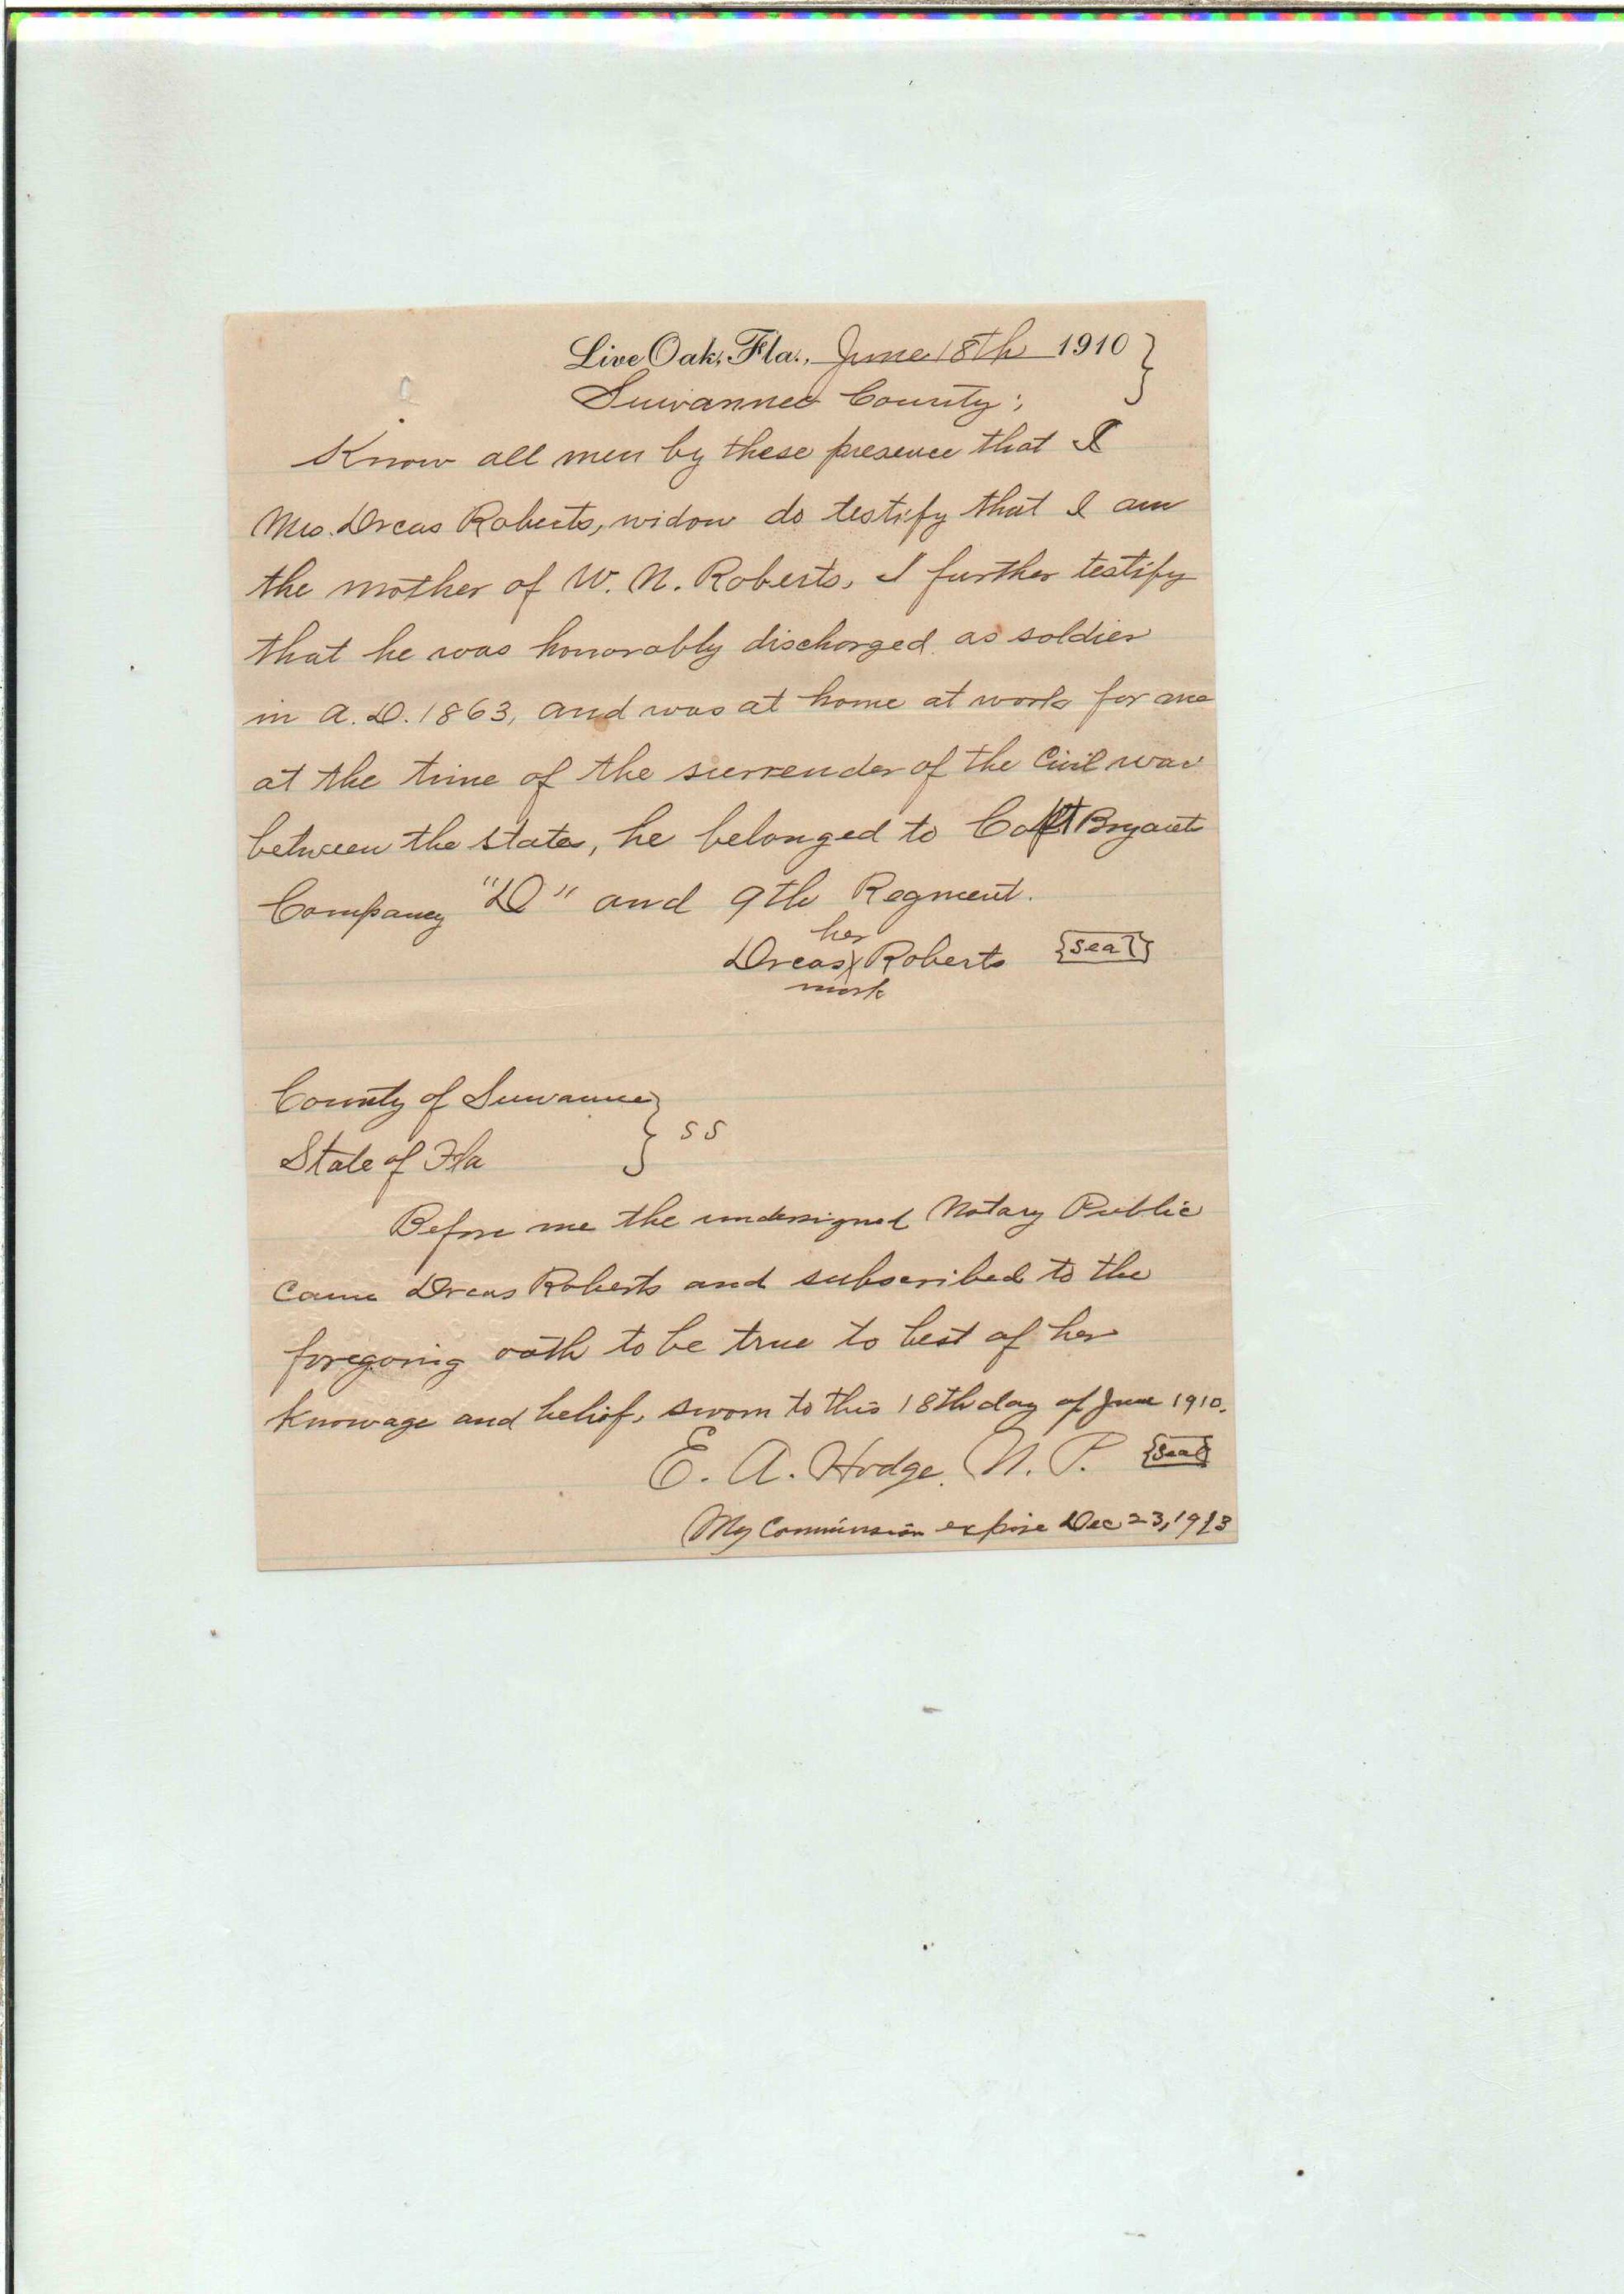 Live Oak, Fla., June 18th 1910 }
Suwannee County;
Know all men by these presence that I
Mrs. Dreas Roberts, widow do testify that I am
the mother of W. N. Roberts, I further testify
that he was honorably discharged as soldier
in A.D. 1863, and was at home at work for me
at the time of the surrender of the Civil war
between the states, he belonged to Capt Bryant
Company "D" and 9th Regment.
her
Dreas X Roberts {seal}
mark
County of Suwannee }
State of Fla } SS
Before me the undersigned Notary Public
came Dreas Roberts and subscribed to the
foregoing oath to be true to best of her
knowage and belief, sworn to this 18th day of June 1910.
E. A. Hodge, N. P. {Seal}
My Commission expire Dec 23, 1913